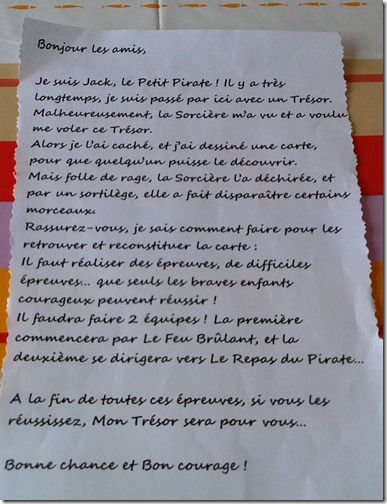 Bonjour les amis,
Je suis Jack, le Petit Pirate ! Il y a très
longtemps, je suis passé par ici avec un Trésor.
Malheureusement, la Sorcière m'a vu et a voulu
me voler ce Trésor.
Alors je l'ai caché, et j'ai dessiné une carte,
pour que quelqu'un puisse le découvrir.
Mais folle de rage, la Sorcière l'a déchirée, et
par un sortilège, elle a fait disparaître certains
morceaux.
Rassurez-vous, je sais comment faire pour les
retrouver et reconstituer la carte :
Il faut réaliser des épreuves, de difficiles
épreuves... que seuls les braves enfants
courageux peuvent réussir !
Il faudra faire 2 équipes ! La première
commencera par Le Feu Brûlant, et la
deuxième se dirigera vers Le Repas du Pirate...
A la fin de toutes ces épreuves, si vous les
réussissez, Mon Trésor sera pour vous...
Bonne chance et Bon courage !